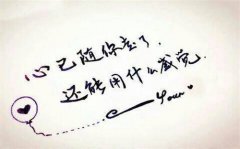 心已随你走了,
还能用什么感觉.